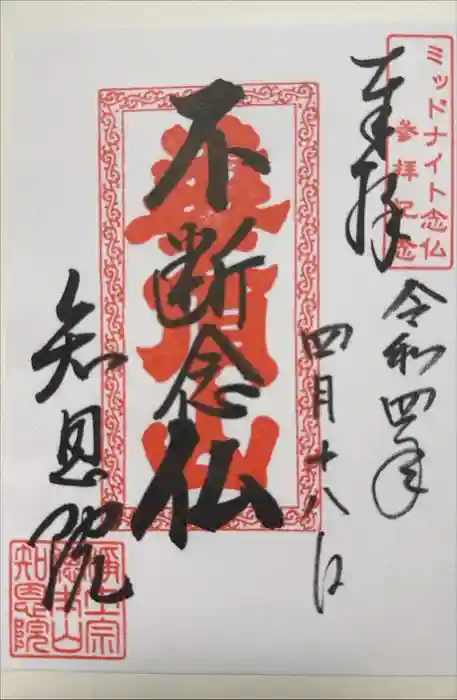 ミッドナイト念仏
参拝記念
奉拝
令和四年
四月十八日
不断念仏
華頂山
知恩院
浄土宗
総本山
知恩院